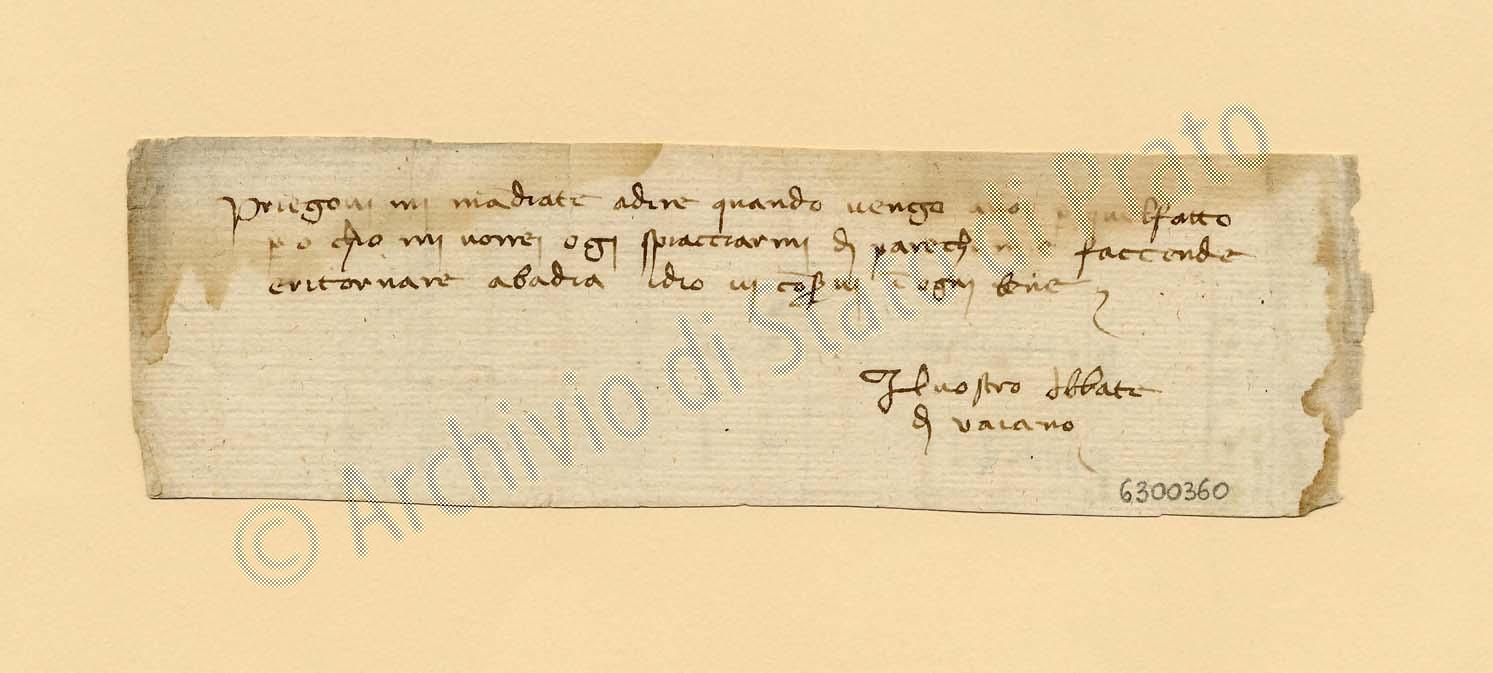 Priegovi mi mãdiate adire quando vengo voi p quelfatto
po chio mi vorrei ogi spacciarmi di parechi mie faccende
eritornare abadia idio vi cõservi ĩ ogni bene
Ilvostro abbate
di vaiano
6300360
© Archivio di Stato di Prato